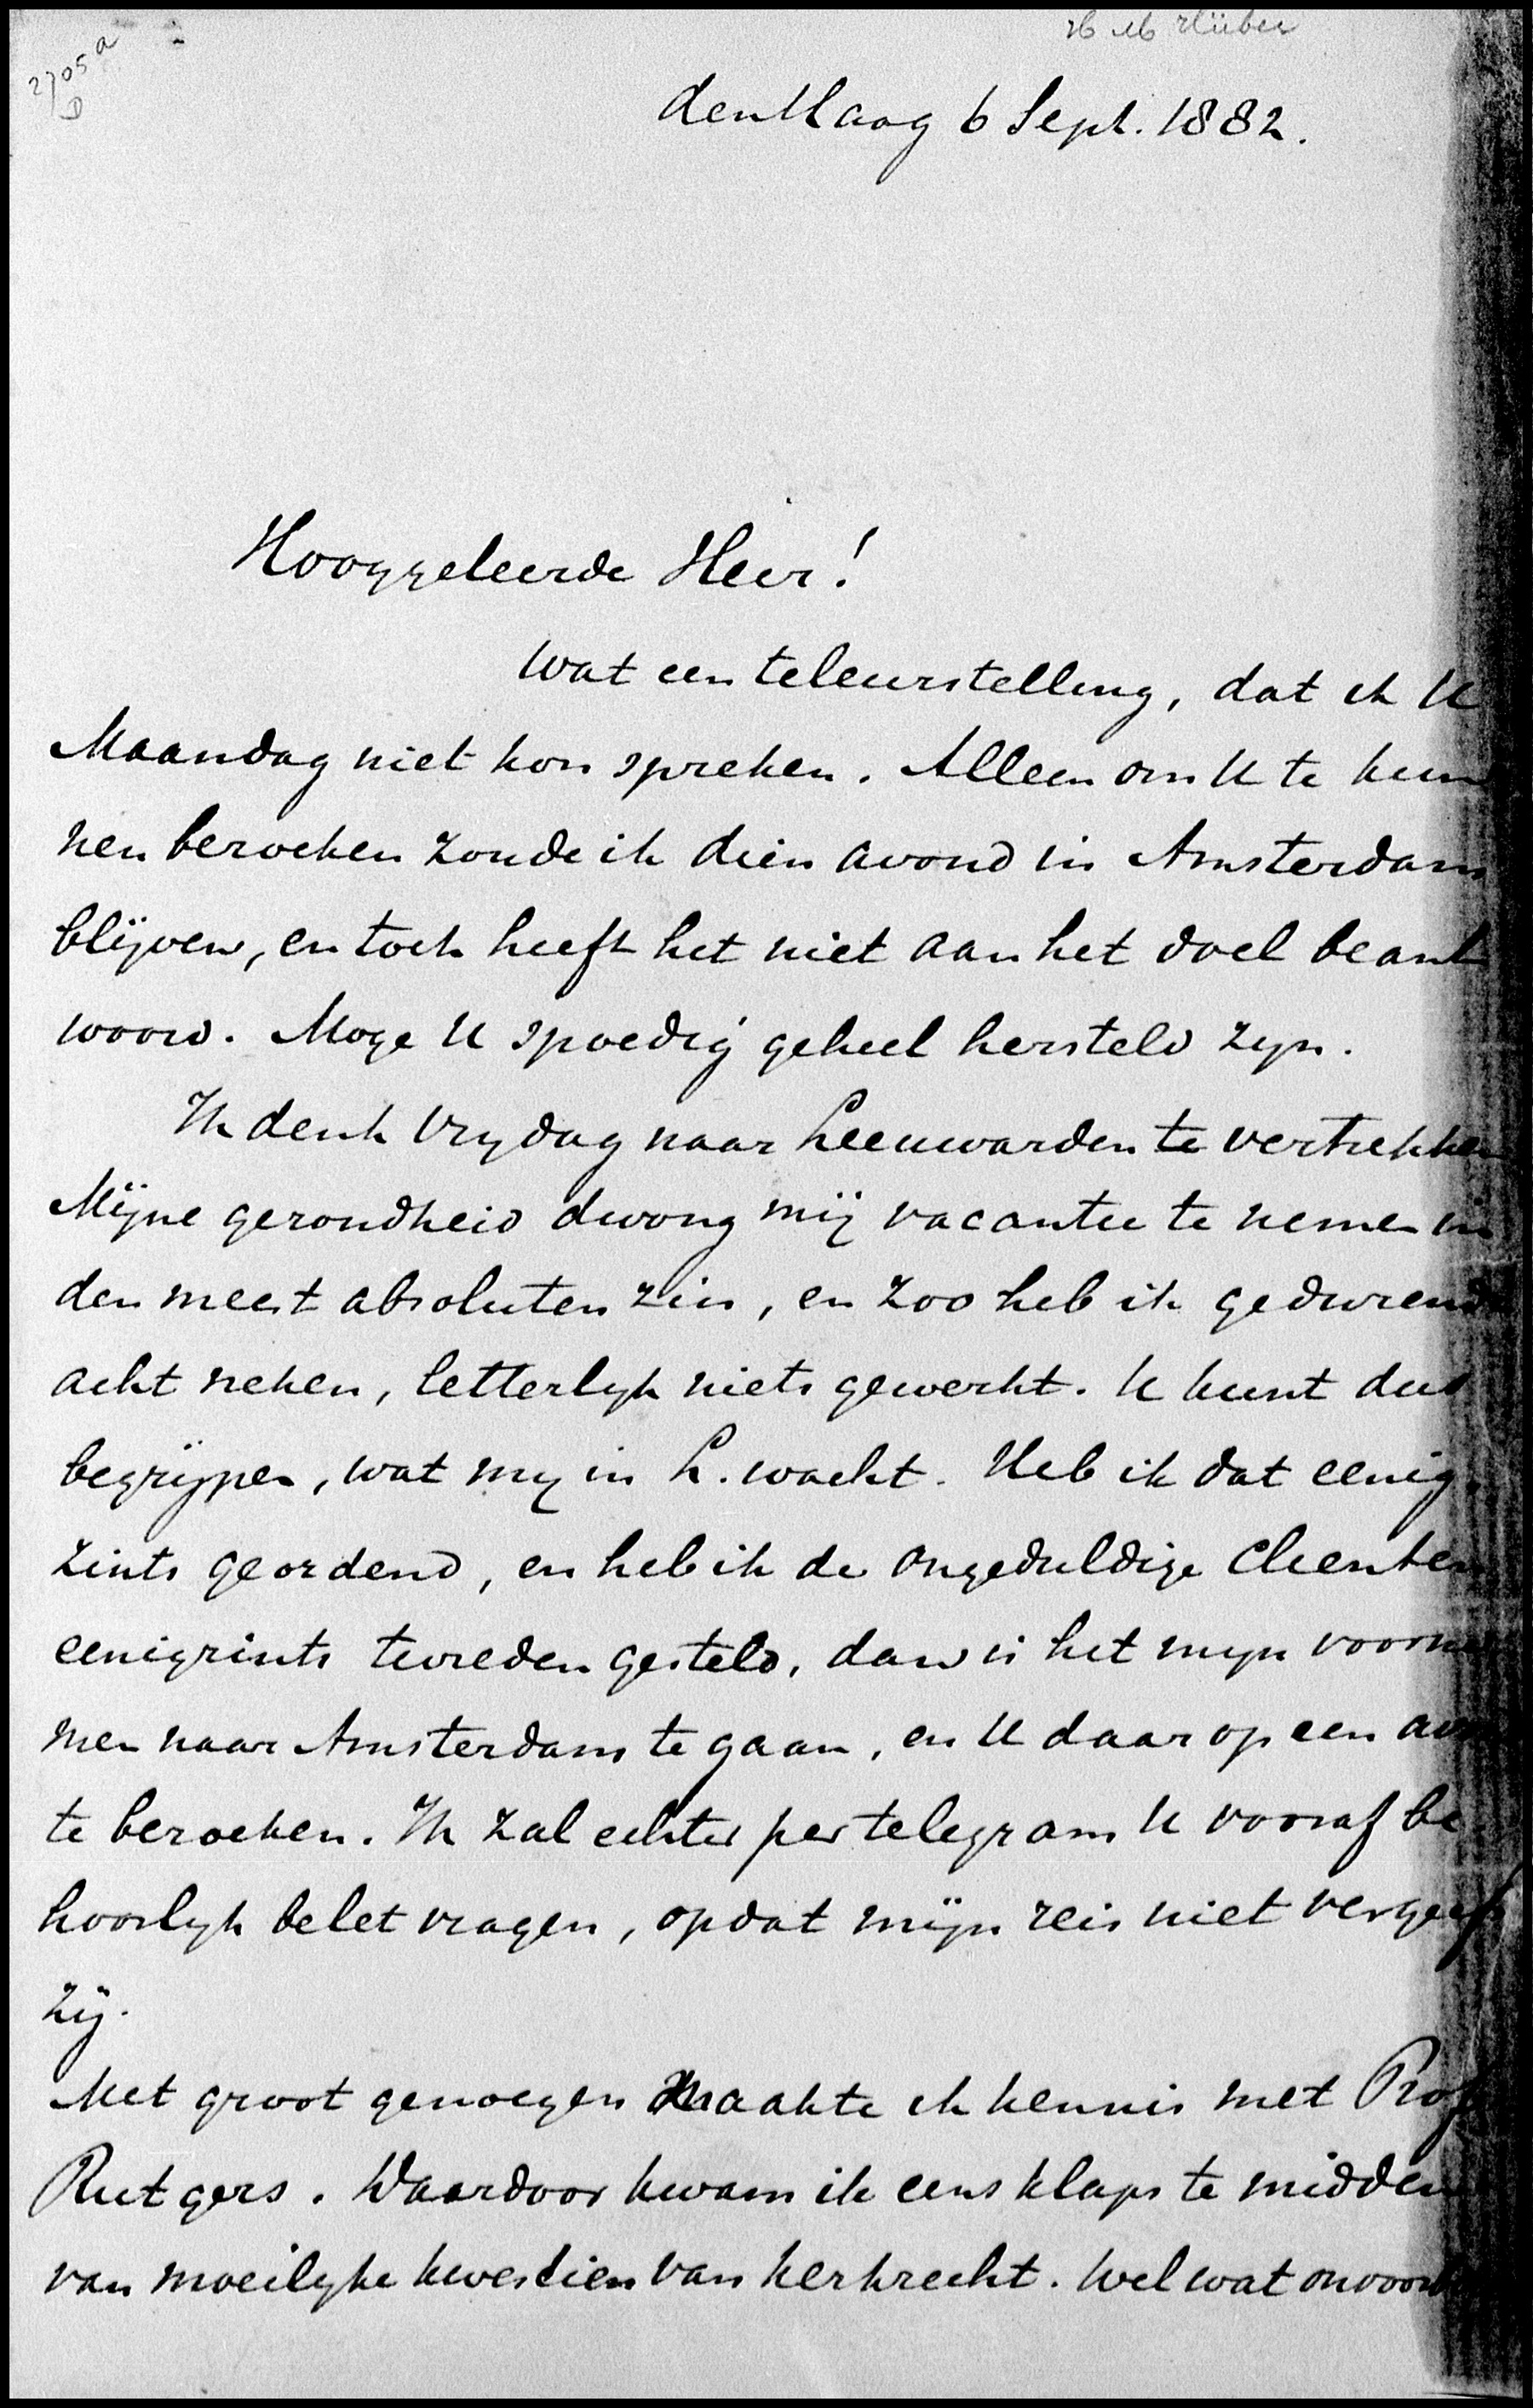 2705a
D
den Haag 6 Sept. 1882.
Hooggeleerde Heer!
Wat een teleurstelling, dat ik U
Maandag niet kon spreken. Alleen om U te kun
nen bezoeken zoude ik dien avond in Amsterdam
blijven, en toch heeft het niet aan het doel beant
woord. Moge U spoedig geheel hersteld zijn.
Ik denk Vrydag naar Leeuwarden te vertrekken
Mijne gezondheid dwong mij vacantie te nemen in
den meest absoluten zin, en zoo heb ik gedurende
acht weken, letterlyk niets gewerkt. U kunt dus
begrijpen, wat my in L. wacht. Heb ik dat eenig
zints geordend, en heb ik de ongeduldige clienten
eenigzints tevreden gesteld, dan is het myn voorne
men naar Amsterdam te gaan, en U daar op een
te bezoeken. Ik zal echter per telegram U vooraf be
hoorlyk belet vragen, opdat mijn reis niet vergeefs
zij.
Met groot genoegen maakte ik kennis met Prof
Rutgers. Daardoor kwam ik eensklaps te midden
van moeilyke kwestien van kerkrecht. Wel wat